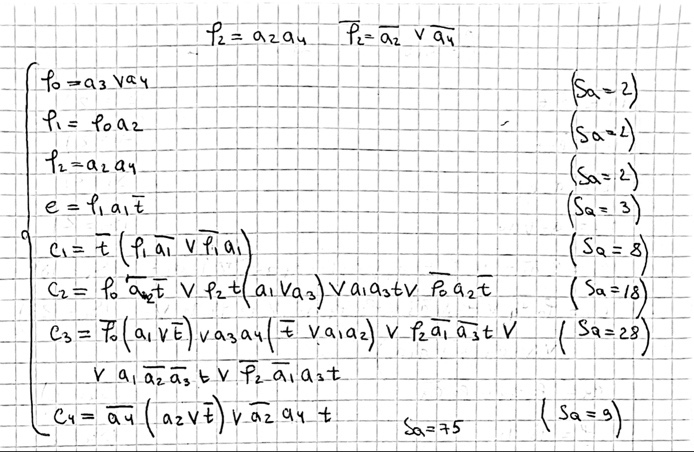 φ₂ = a₂a₄ φ̅₂ = a̅₂ ∨ a̅₄
φ₀ = a₃ ∨ a₄ (Sa = 2)
φ₁ = φ₀a₂ (Sa = 2)
φ₂ = a₂a₄ (Sa = 2)
e = φ₁a₁t̅ (Sa = 3)
c₁ = t̅ (φ₁a̅₁ ∨ φ̅₁a₁) (Sa = 8)
c₂ = φ₀a̅₂t̅ ∨ φ₂t(a₁ ∨ a₃) ∨ a₁a₃t ∨ φ̅₀a₂t̅ (Sa = 18)
c₃ = φ̅₀(a₁ ∨ t̅) ∨ a₃a₄(t̅ ∨ a₁a₂) ∨ φ₂a̅₁a̅₃t ∨ (Sa = 28)
∨ a₁a̅₂a̅₃t ∨ φ̅₂a̅₁a₃t
c₄ = a̅₄(a₂ ∨ t̅) ∨ a̅₂a₄t Sa = 75 (Sa = 9)